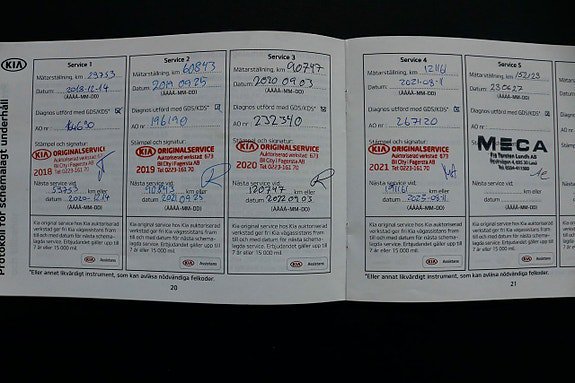 KIA
Protokoll för schemalagt underhåll
Service 1
Mätarställning, km 29753
Datum 2018-12-14
(ÅÅÅÅ-MM-DD)
Diagnos utförd med GDS/KDS*
AO nr
Stämpel och signatur:
KIA ORIGINALSERVICE
Auktoriserad verkstad 673
Bil City i Fagersta AB
2018 Tel 0223-161 70
Nästa service vid:
53753 km eller
datum 2020-12-14
(ÅÅÅÅ-MM-DD)
Kia original service hos Kia auktoriserad
verkstad ger fri Kia vägassistans fram
till och med datum för nästa schema-
lagda service. Erbjudandet gäller upp till
7 år eller 15 000 mil.
KIA Assistans
Service 2
Mätarställning, km 60843
Datum 2019 09 25
(ÅÅÅÅ-MM-DD)
Diagnos utförd med GDS/KDS*
AO nr 196190
Stämpel och signatur:
KIA ORIGINALSERVICE
Auktoriserad verkstad 673
Bil City i Fagersta AB
2019 Tel 0223-161 70
Nästa service vid:
90843 km eller
datum 2021 09 25
(ÅÅÅÅ-MM-DD)
Kia original service hos Kia auktoriserad
verkstad ger fri Kia vägassistans fram
till och med datum för nästa schema-
lagda service. Erbjudandet gäller upp till
7 år eller 15 000 mil.
KIA Assistans
Service 3
Mätarställning, km 90747
Datum 2020 09 03
(ÅÅÅÅ-MM-DD)
Diagnos utförd med GDS/KDS*
AO nr 232340
Stämpel och signatur:
KIA ORIGINALSERVICE
Auktoriserad verkstad 673
Bil City i Fagersta AB
2020 Tel 0223-161 70
Nästa service vid:
120747 km eller
datum 2022 09 03
(ÅÅÅÅ-MM-DD)
Kia original service hos Kia auktoriserad
verkstad ger fri Kia vägassistans fram
till och med datum för nästa schema-
lagda service. Erbjudandet gäller upp till
7 år eller 15 000 mil.
KIA Assistans
*Eller annat likvärdigt instrument, som kan avläsa nödvändiga felkoder.
20
Service 4
Mätarställning, km
Datum
(ÅÅÅÅ-MM-DD)
Diagnos utförd med GDS/KDS*
AO nr 267120
Stämpel och signatur:
KIA ORIGINALSERVICE
Auktoriserad verkstad 673
Bil City i Fagersta AB
2021 Tel 0223-161 70
Nästa service vid:
km eller
datum
(ÅÅÅÅ-MM-DD)
Kia original service hos Kia auktoriserad
verkstad ger fri Kia vägassistans fram
till och med datum för nästa schema-
lagda service. Erbjudandet gäller upp till
7 år eller 15 000 mil.
KIA Assistans
Service 5
Mätarställning, km 152123
Datum 230627
(ÅÅÅÅ-MM-DD)
Diagnos utförd med GDS/KDS*
AO nr
Stämpel och signatur:
MECA
Fia Torsten Lundh AB
Nästa service vid:
km eller
datum
(ÅÅÅÅ-MM-DD)
Kia original service hos Kia auktoriserad
verkstad ger fri Kia vägassistans fram
till och med datum för nästa schema-
lagda service. Erbjudandet gäller upp till
7 år eller 15 000 mil.
KIA Assistans
*Eller annat likvärdigt instrument, som kan avläsa nödvändiga felkoder.
21